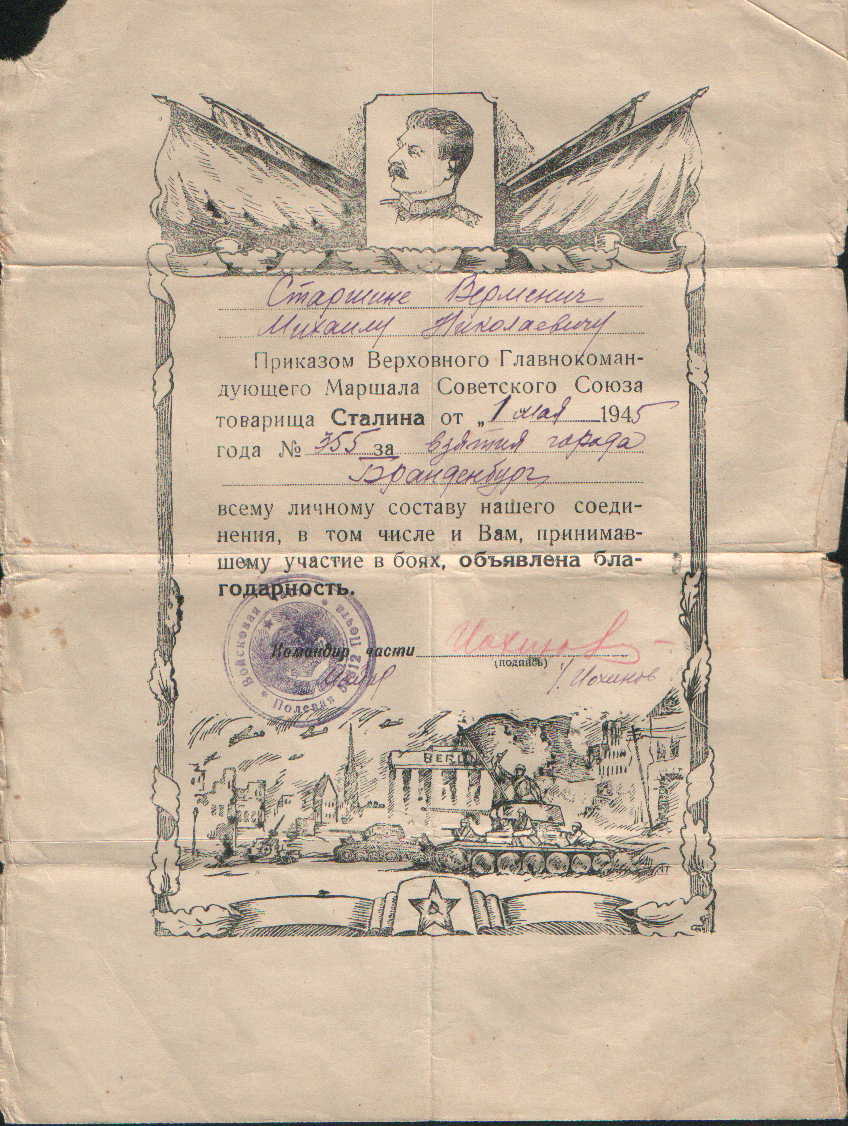 Старшине Верменич
Михаилу Николаевичу
Приказом Верховного Главнокоман-
дующего Маршала Советского Союза
товарища Сталина от „1 мая 1945
года № 355 за взятия города
Бранденбург
всему личному составу нашего соеди-
нения, в том числе и Вам, принимав-
шему участие в боях, объявлена бла-
годарность.
Войсковая
Полевая Почта
Командир части
(подпись)
Иохинов
BERL